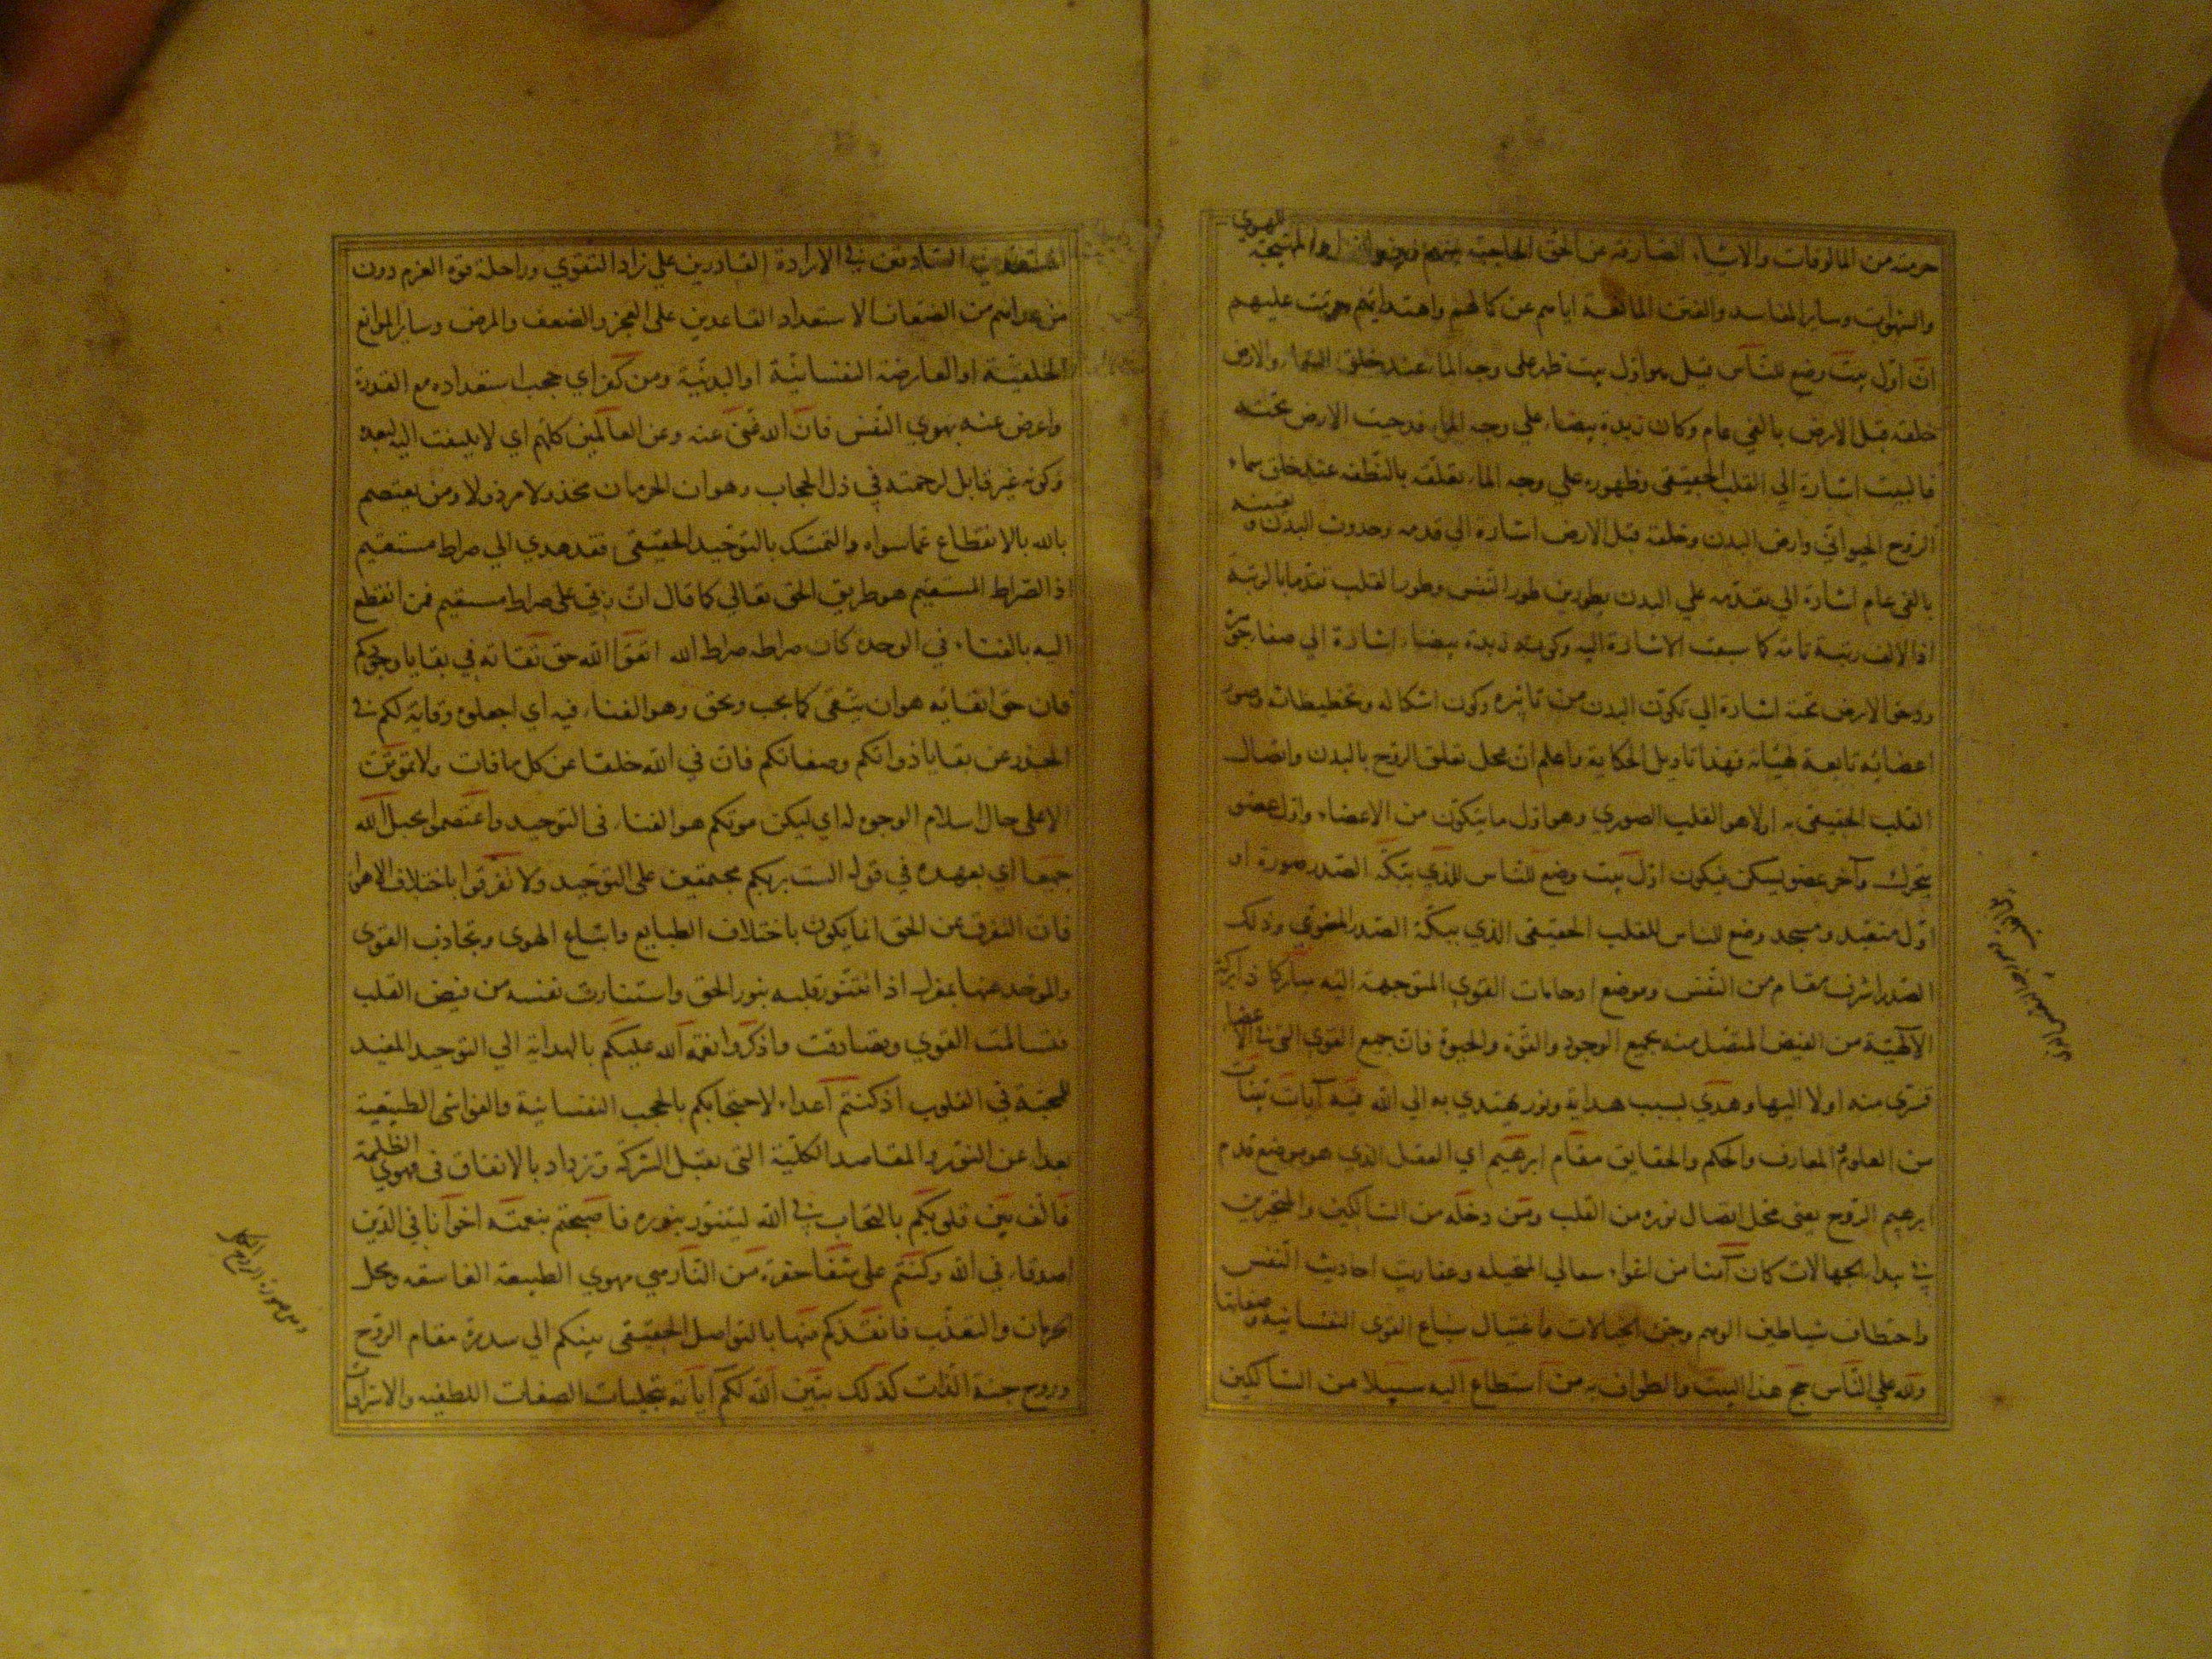 حرمته من المالوفات والاشياء الصارفة عن الحق الحاجبة المهيجة للهوي
والشهوات وساير المفاسد والفتن المانعة اياهم عن كمالهم واهتدائهم حرمت عليهم
ان اول بيت وضع للناس قيل هو اول بيت ظهر على وجه الماء عند خلق السماء والارض
خلقه قبل الارض بالفي عام وكان زبدة بيضاء علي وجه الماء فدحيت الارض تحته
فالبيت اشارة الي القلب الحقيقي وظهوره علي وجه الماء تعلقه بالنطفه عند خلق سماء
الروح الحيواني وارض البدن وخلقه قبل الارض اشارة الي قدمه وحدوث البدن و
بالفي عام اشارة الي تقدمه علي البدن بطورين طور النفس وطور القلب تقدما بالرتبة
اذ الالف رتبة تامة كما سبقت الاشارة اليه وكونه زبدة بيضاء اشارة الي صفاء جوهره
ودحو الارض تحته اشارة الي تكون البدن من تاثيره وكون اشكاله وتخطيطاته وصور
اعضائه تابعة لهيئاته فهذا تاويل الحكاية واعلم ان محل تعلق الروح بالبدن واتصال
القلب الحقيقي به اولا هو القلب الصوري وهو اول ما يتكون من الاعضاء واول عضو
يتحرك وآخر عضو يسكن فيكون اول بيت وضع للناس للذي ببكة الصدر صورة او
اول متعبد ومسجد وضع للناس للقلب الحقيقي الذي ببكة الصدر المعنوي وذلك
الصدر اشرف مقام من النفس وموضع ازدحامات القوي المتوجهة اليه مباركا ذا بركة
الآلهية من الفيض المتصل منه بجميع الوجود والقوة والحيوة فان جميع القوي التي في الاعضا
تسرى منه اولا اليها وهدي بسبب هداية ونور يهتدي به الي الله فيه آيات بينات
من العلوم والمعارف والحكم والحقايق مقام ابرهيم اي العقل الذي هو موضع قدم
ابرهيم الروح يعني محل اتصال نوره من القلب ومن دخله من السالكين والمتحيرين
في بيداء الجهالات كان آمنا من اغواء سعالي المتخيله وعفاريت احاديث النفس
واختطاف شياطين الوهم وجن الخيالات واغتيال سباع القوى النفسانية وصفاتها
ولله علي الناس حج هذا البيت والطواف به من استطاع اليه سبيلا من السالكين
المستعدين الصادقين في الارادة القادرين علي زاد التقوي وراحلة قوة العزم دون
من عداهم من الضعفاء الاستعداد القاعدين على العجز والضعف والمرض وساير الموانع
الخلقية او العارضة النفسانية او البدنية ومن كفر اي حجب استعداده مع القدرة
واعرض عنه بهوي النفس فان الله غني عنه وعن العالمين كلهم اي لا يلتفت اليه لبعده
وكونه غير قابل لرحمته في ذل الحجاب وهوان الحرمان مخذولا مرذولا ومن يعتصم
بالله بالانقطاع عما سواه والتمسك بالتوحيد الحقيقي فقد هدي الي صراط مستقيم
اذ الصراط المستقيم هو طريق الحق تعالي كما قال ان ربي على صراط مستقيم فمن انقطع
اليه بالفناء في الوحدة كان صراطه صراط الله اتقوا الله حق تقاته في بقايا وجودكم
فان حق اتقائه هو ان يتقى كما يجب ويحق وهو الفناء فيه اي اجعلوه وقاية لكم في
الحذر عن بقايا ذواتكم وصفاتكم فان في الله خلفا عن كل ما فات ولا تموتن
الا على حال اسلام الوجوه له اي ليكن موتكم هو الفناء في التوحيد واعتصموا بحبل الله
جميعا اي بعهده في قوله الست بربكم مجتمعين على التوحيد ولا تفرقوا باختلاف الاهوا
فان التفرق عن الحق انما يكون باختلاف الطبايع واتباع الهوى وتجاذب القوى
والموحد عنها بمعزل اذا تنور قلبه بنور الحق واستنارت نفسه من فيض القلب
فتسالمت القوي وتصادقت واذكروا نعمة الله عليكم بالهداية الي التوحيد المفيد
للمحبة في القلوب اذ كنتم اعداء لاحتجابكم بالحجب النفسانية والغواشى الطبيعية
بعداء عن النور والمقاصد الكلية التى تقبل الشركة وتزداد بالاتفاق في مهوي الظلمة
فالف بين قلوبكم بالتحاب في الله لتتنور بنوره فاصبحتم بنعمته اخوانا في الدين
اصدقاء في الله وكنتم على شفا حفرة من النار هي مهوي الطبيعة الفاسقه ومحل
الحرمان والتعذب فانقذكم منها بالتواصل الحقيقي بينكم الي سدرة مقام الروح
وروح جنة الذات كذلك يبين الله لكم آياته بتجليات الصفات اللطفيه والاشراقات